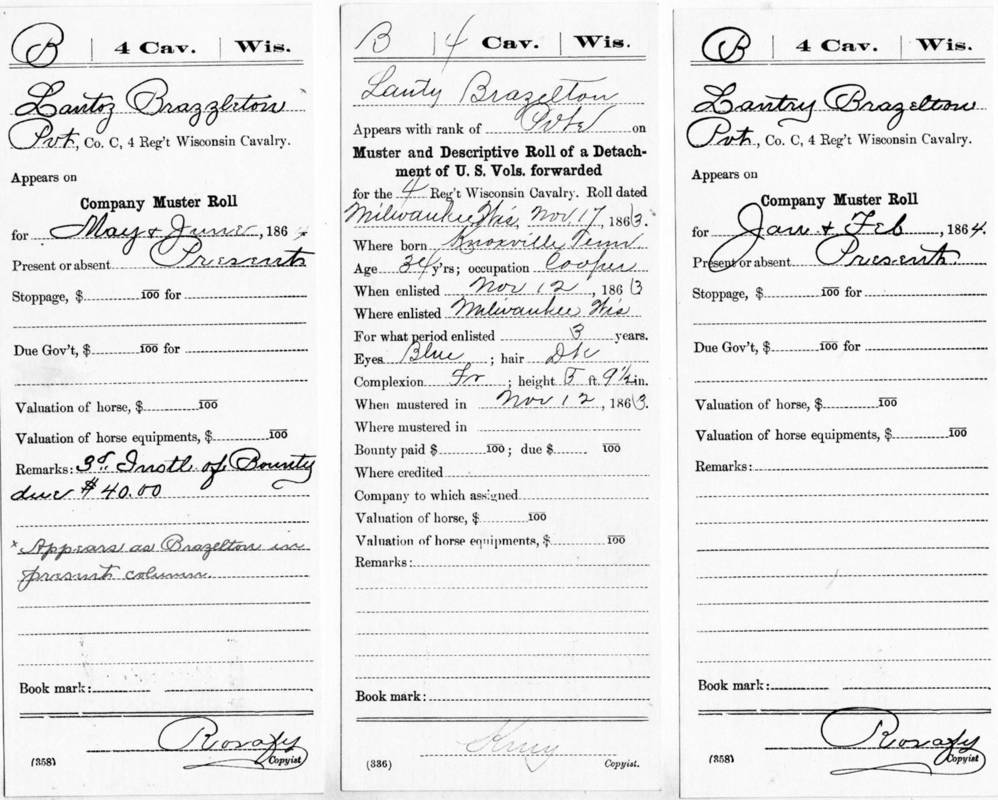 B | 4 Cav. | Wis.
Lantoz Brazzleton
Pvt., Co. C, 4 Reg't Wisconsin Cavalry.
Appears on
Company Muster Roll
for May & June, 186
Present or absent Present
Stoppage, $ 100 for
Due Gov't, $ 100 for
Valuation of horse, $ 100
Valuation of horse equipments, $ 100
Remarks: 3d. Instl of Bounty
due $40.00
* Appears as Brazelton in
present column.
Book mark:
(358)
Copyist
B | 4 Cav. | Wis.
Lanty Brazelton
Appears with rank of Pvte on
Muster and Descriptive Roll of a Detach-
ment of U. S. Vols. forwarded
for the 4 Reg't Wisconsin Cavalry. Roll dated
Milwaukee Wis, Nov 17, 1863.
Where born Knoxville Tenn
Age 34 y'rs; occupation Cooper
When enlisted Nov 12, 1863
Where enlisted Milwaukee Wis
For what period enlisted 3 years.
Eyes Blue; hair Dk
Complexion Fr; height 5 ft. 9½ in.
When mustered in Nov 12, 1863.
Where mustered in
Bounty paid $ 100; due $ 100
Where credited
Company to which assigned
Valuation of horse, $ 100
Valuation of horse equipments, $ 100
Remarks:
Book mark:
(336)
Copyist.
B | 4 Cav. | Wis.
Lantry Brazelton
Pvt., Co. C, 4 Reg't Wisconsin Cavalry.
Appears on
Company Muster Roll
for Jan & Feb, 1864.
Present or absent Present.
Stoppage, $ 100 for
Due Gov't, $ 100 for
Valuation of horse, $ 100
Valuation of horse equipments, $ 100
Remarks:
Book mark:
(358)
Copyist